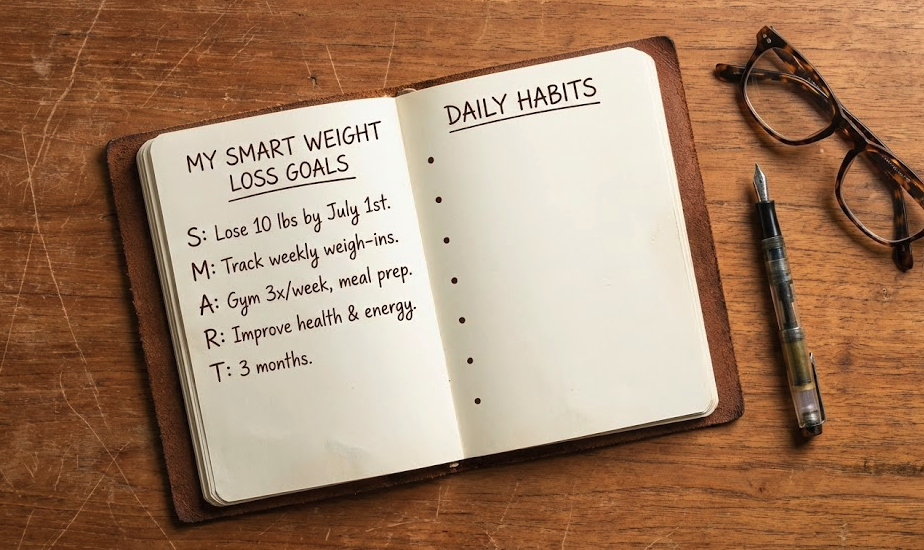 MY SMART WEIGHT
LOSS GOALS
S: Lose 10 lbs by July 1st.
M: Track weekly weigh-ins.
A: Gym 3x/week, meal prep.
R: Improve health & energy.
T: 3 months.
DAILY HABITS
•
•
•
•
•
•
•